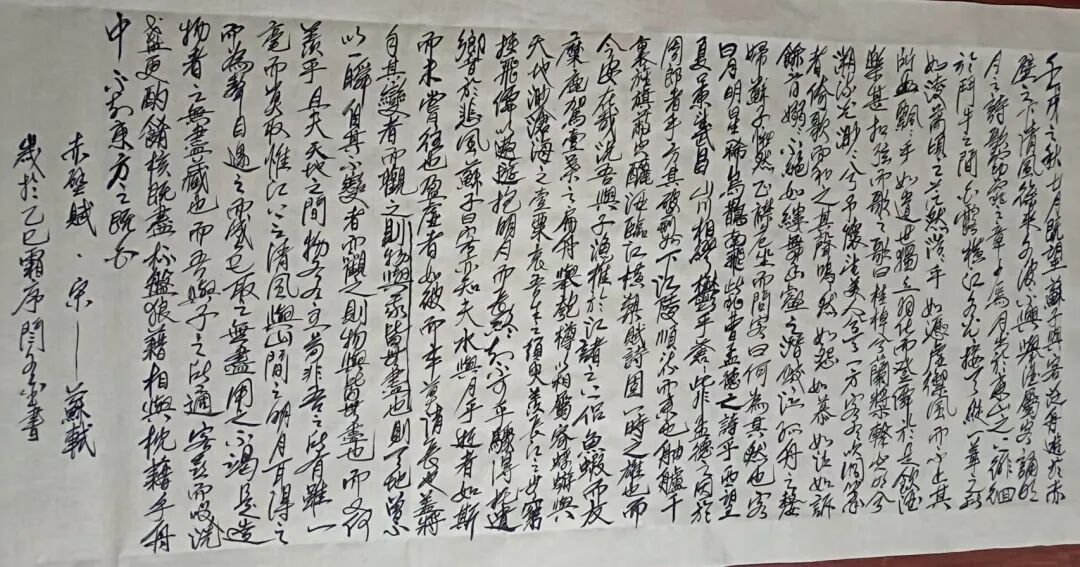 壬戌之秋七月既望蘇子與客泛舟遊於赤
壁之下清風徐來水波不興舉酒屬客誦明
月之詩歌窈窕之章少焉月出於東山之上徘徊
於鬥牛之間白露橫江水光接天縱一葦之所
如凌萬頃之茫然浩浩乎如馮虛御風而不止其
所止飄飄乎如遺世獨立羽化而登仙於是飲酒
樂甚扣弦而歌之歌曰桂棹兮蘭槳擊空明兮
溯流光渺渺兮予懷望美人兮天一方客有吹洞簫
者倚歌而和之其聲嗚然如怨如慕如泣如訴
餘音嫋嫋不絕如縷舞幽壑之潛蛟泣孤舟之嫠
婦蘇子愀然正襟危坐而問客曰何為其然也客
曰月明星稀烏鵲南飛此非曹孟德之詩乎西望
夏口東望武昌山川相繆鬱乎蒼蒼此非孟德之困於
周郎者乎方其破荊州下江陵順流而東也舳艫千
里旌旗蔽空釃酒臨江橫槊賦詩固一時之雄也而
今安在哉況吾與子漁樵於江渚之上侶魚蝦而友
麋鹿駕壹葉之扁舟舉匏樽以相屬寄蜉蝣與
天地渺滄海之壹粟哀吾生之須臾羨長江之無窮
挾飛仙以遨遊抱明月而長終知不可乎驟得托遺
響於悲風蘇子曰客亦知夫水與月乎逝者如斯
而未嘗往也盈虛者如彼而卒莫消長也蓋將
自其變者而觀之則物與我皆無盡也則天地曾不
以一瞬自其不變者而觀之則物與皆無盡也而又何
羨乎且夫天地之間物各有主苟非吾之所有雖一
毫而莫取惟江上之清風與山間之明月耳得之
而為聲目遇之而成色取之無盡用之不竭是造
物者之無盡藏也而吾與子之所適客喜而笑洗
盞更酌餚核既盡杯盤狼藉相與枕藉乎舟
中不知東方之既白
赤壁賦·宋——蘇軾
歲於乙巳霜序閆書